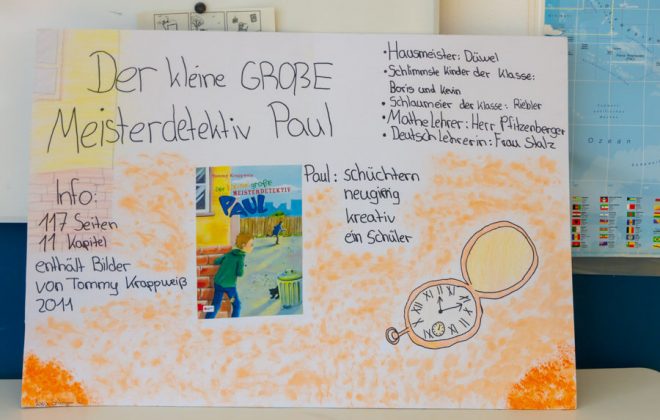 Der kleine GROßE
Meisterdetektiv Paul
• Hausmeister: Düwel
• Schlimmste Kinder der Klasse:
Boris und Kevin
• Schlaumeier der Klasse: Riebler
• Mathelehrer: Herr Pfitzenberger
• Deutschlehrerin: Frau Stalz
Info:
117 Seiten
11 Kapitel
enthält Bilder
von Tommy Krappweiß
2011
Tommy Krappweis
Der kleine große
MEISTERDETEKTIV
PAUL
Paul: schüchtern
neugierig
kreativ
ein Schüler
XII
I
II
III
IV
V
VII
VIII
IX
X
XI
Ozean